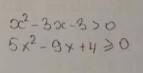 x² - 3x - 3 > 0
5x² - 9x + 4 ⩾ 0